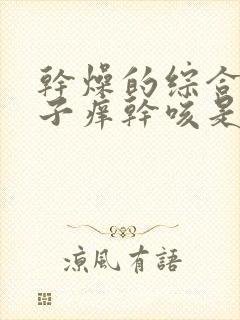 幹燥的综合
子痒幹咳是
涼風有語